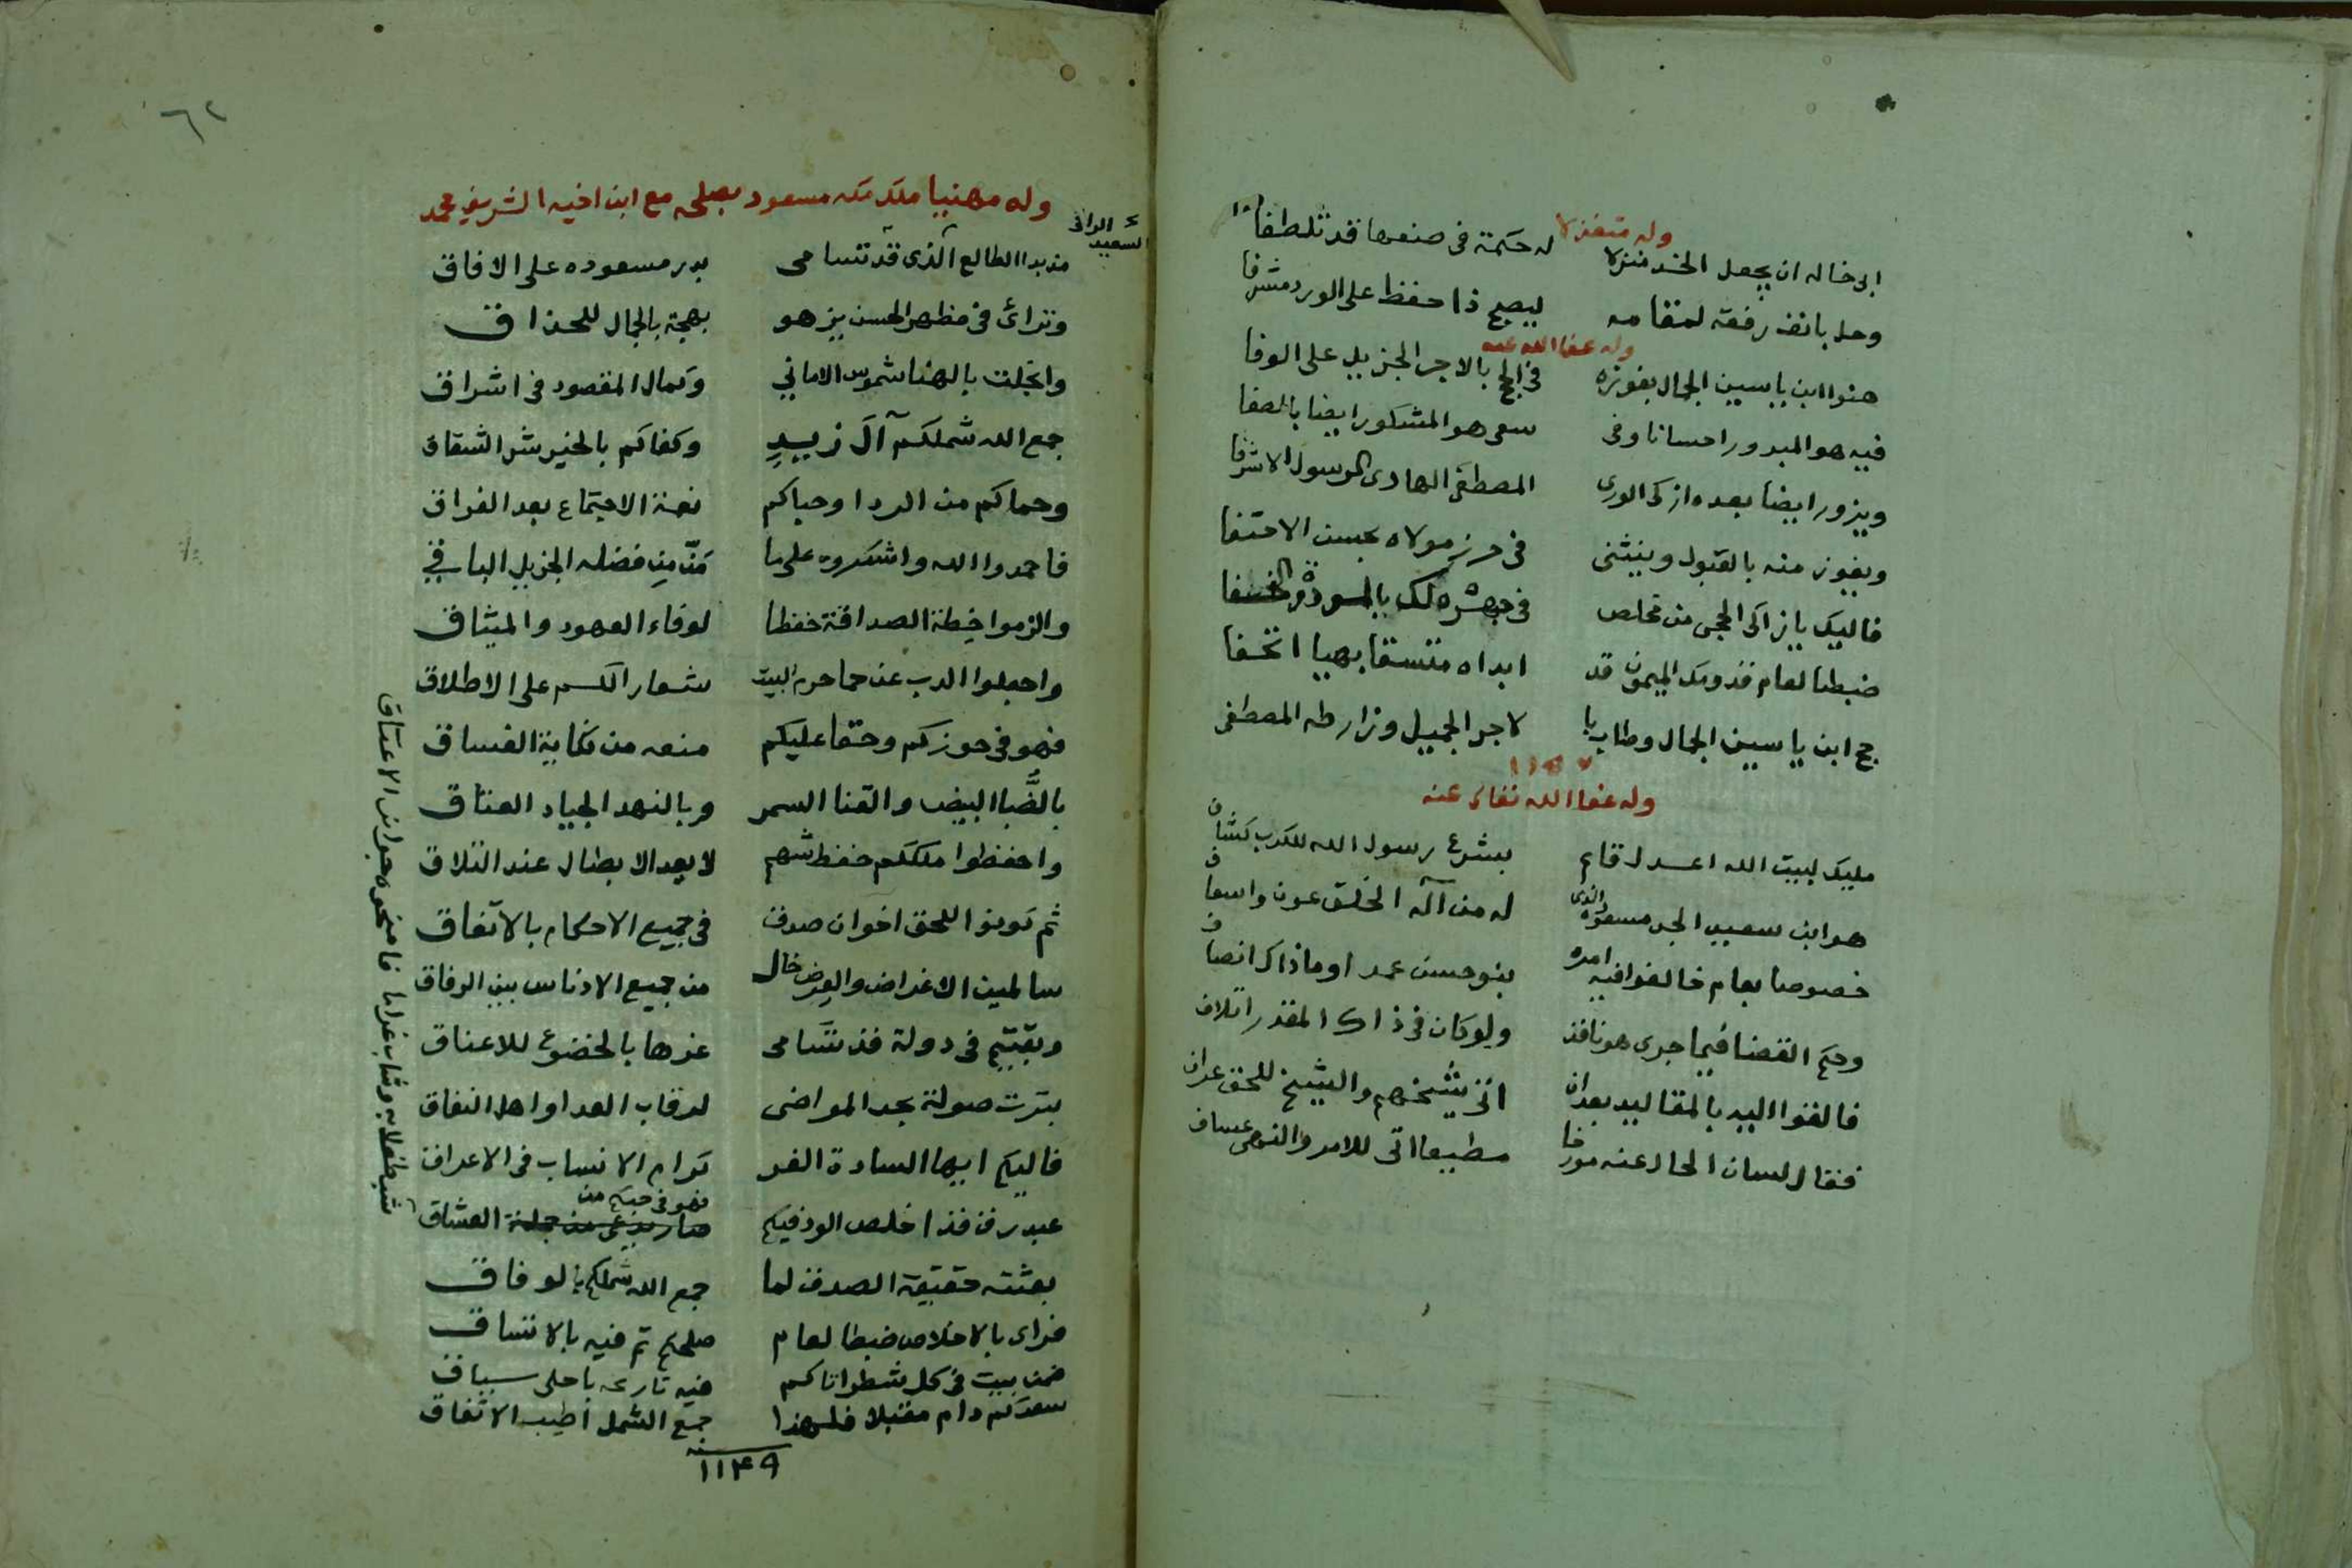 وله متغزلا
ابى خاله ان يجعل الخد منزلا له حكمة فى صنعها قد تلطفا
وحل بانف رفعة لمقامه ليصبح ذا حفظ على الورد مشرفا
وله عفا الله عنه
هنوا ابن ياسين الجمال بفوزه فى الحج بالاجر الجزيل على الوفا
فيه هو المبرور احسانا وفى سعى هو المشكور ايضا بالصفا
ويزور ايضا بعده ازكى الورى المصطفى الهادى الرسول الاشرفا
ويفوز منه بالقبول وينثنى فى حرز مولاه بحسن الاحتفا
فاليك يا زاكى الحجى من مخلص فى
ضبطا لعام قدومك الميمون قد ابداه متسقا بهيا اتحفا
حج ابن ياسين الجمال وطاب با لاجر الجميل وزار طه المصطفى
وله عفا الله تعالى عنه
مليك لبيت الله اعدل قام بشرع رسول الله للكرب كشاف
هو ابن سعيد الجد مسعود الذى له من آله الخلق عون واسعاف
خصوصا بعام خالفوا فيه امره بنو حسن عمدا وماذاك انصاف
وحكم القضا فيما جرى هو نافذ ولو كان فى ذاك المقدر اتلاف
فالقوا اليه بالمقاليد بعدان اتى شيخهم والشيخ للحق عراف
فقال لسان الحال عنه مورخا مطيعا اتى للامر والنهى عساف
٦٢
وله مهنيا ملك مكه مسعود بصلحه مع ابن اخيه الشريف محمد
السعيد الراقى
مذ بدا الطالع الذى قد تسامى بدر مسعوده على الافاق
وترائ فى مظهر الحسن يزهو بهجة بالجمال للحذاق
وانجلت بالهنا شموس الاماني وكمال المقصود فى اشراق
جمع الله شملكم آل زيد وكفاكم بالخير شر الشقاق
وحماكم من الردا وحباكم نعمة الاجتماع بعد الفراق
فاحمدوا الله واشكروه على ما مَنّ مِن فضله الجزيل الباقي
والزموا خِطة الصداقة حفظا لوفاء العهود والميثاق
واجعلوا الذب عن حما حرم البيت شعارا لكم على الاطلاق
فهو فى حوزكم وحقا عليكم منعه من نكاية الفساق
بالضُّبا البيض والقنا السمر وبالنهد الجياد العتاق
واحفظوا ملككم حفظ شهم لا يعد الابطال عند التلاق
ثم كونوا للحق اخوان صدق فى جميع الاحكام بالاتفاق
سالمين الاغراض والعِرض خال من جميع الادناس بين الرفاق
وبقيتم فى دولة قد تسامى عزها بالخضوع للاعناق
بترت صولة بحد المواضى لرقاب العدا واهل النفاق
فاليكم ايها السادة الغر كرام الانساب فى الاعراق
عبد رق قد اخلص الود فيكم فهو فى حبكم من العشاق
بعثته حقيقة الصدق لما جمع الله شملكم بالوفاق
فراى بالاخلاص ضبطا لعام صلحكم تم فيه بالاتساق
ضمن بيت فى كل شطر اتاكم فيه تاريخه باحلى سياق
سعدكم دام مقبلا فلهذا جمع الشمل أطيب الاتفاق
سنة
١١٤٩